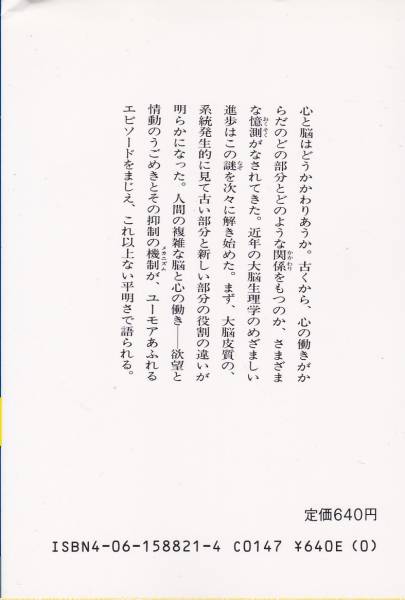 心と脳はどうかかわりあうか。古くから、心の働きがか
らだのどの部分とどのような関係をもつのか、さまざま
な憶測がなされてきた。近年の大脳生理学のめざましい
進歩はこの謎を次々に解き始めた。まず、大脳皮質の、
系統発生的に見て古い部分と新しい部分の役割の違いが
明らかになった。人間の複雑な脳と心の働き──欲望と
情動のうごめきとその抑制の機制が、ユーモアあふれる
エピソードをまじえ、これ以上ない平明さで語られる。
定価640円
ISBN4-06-158821-4 C0147 ¥640E (0)